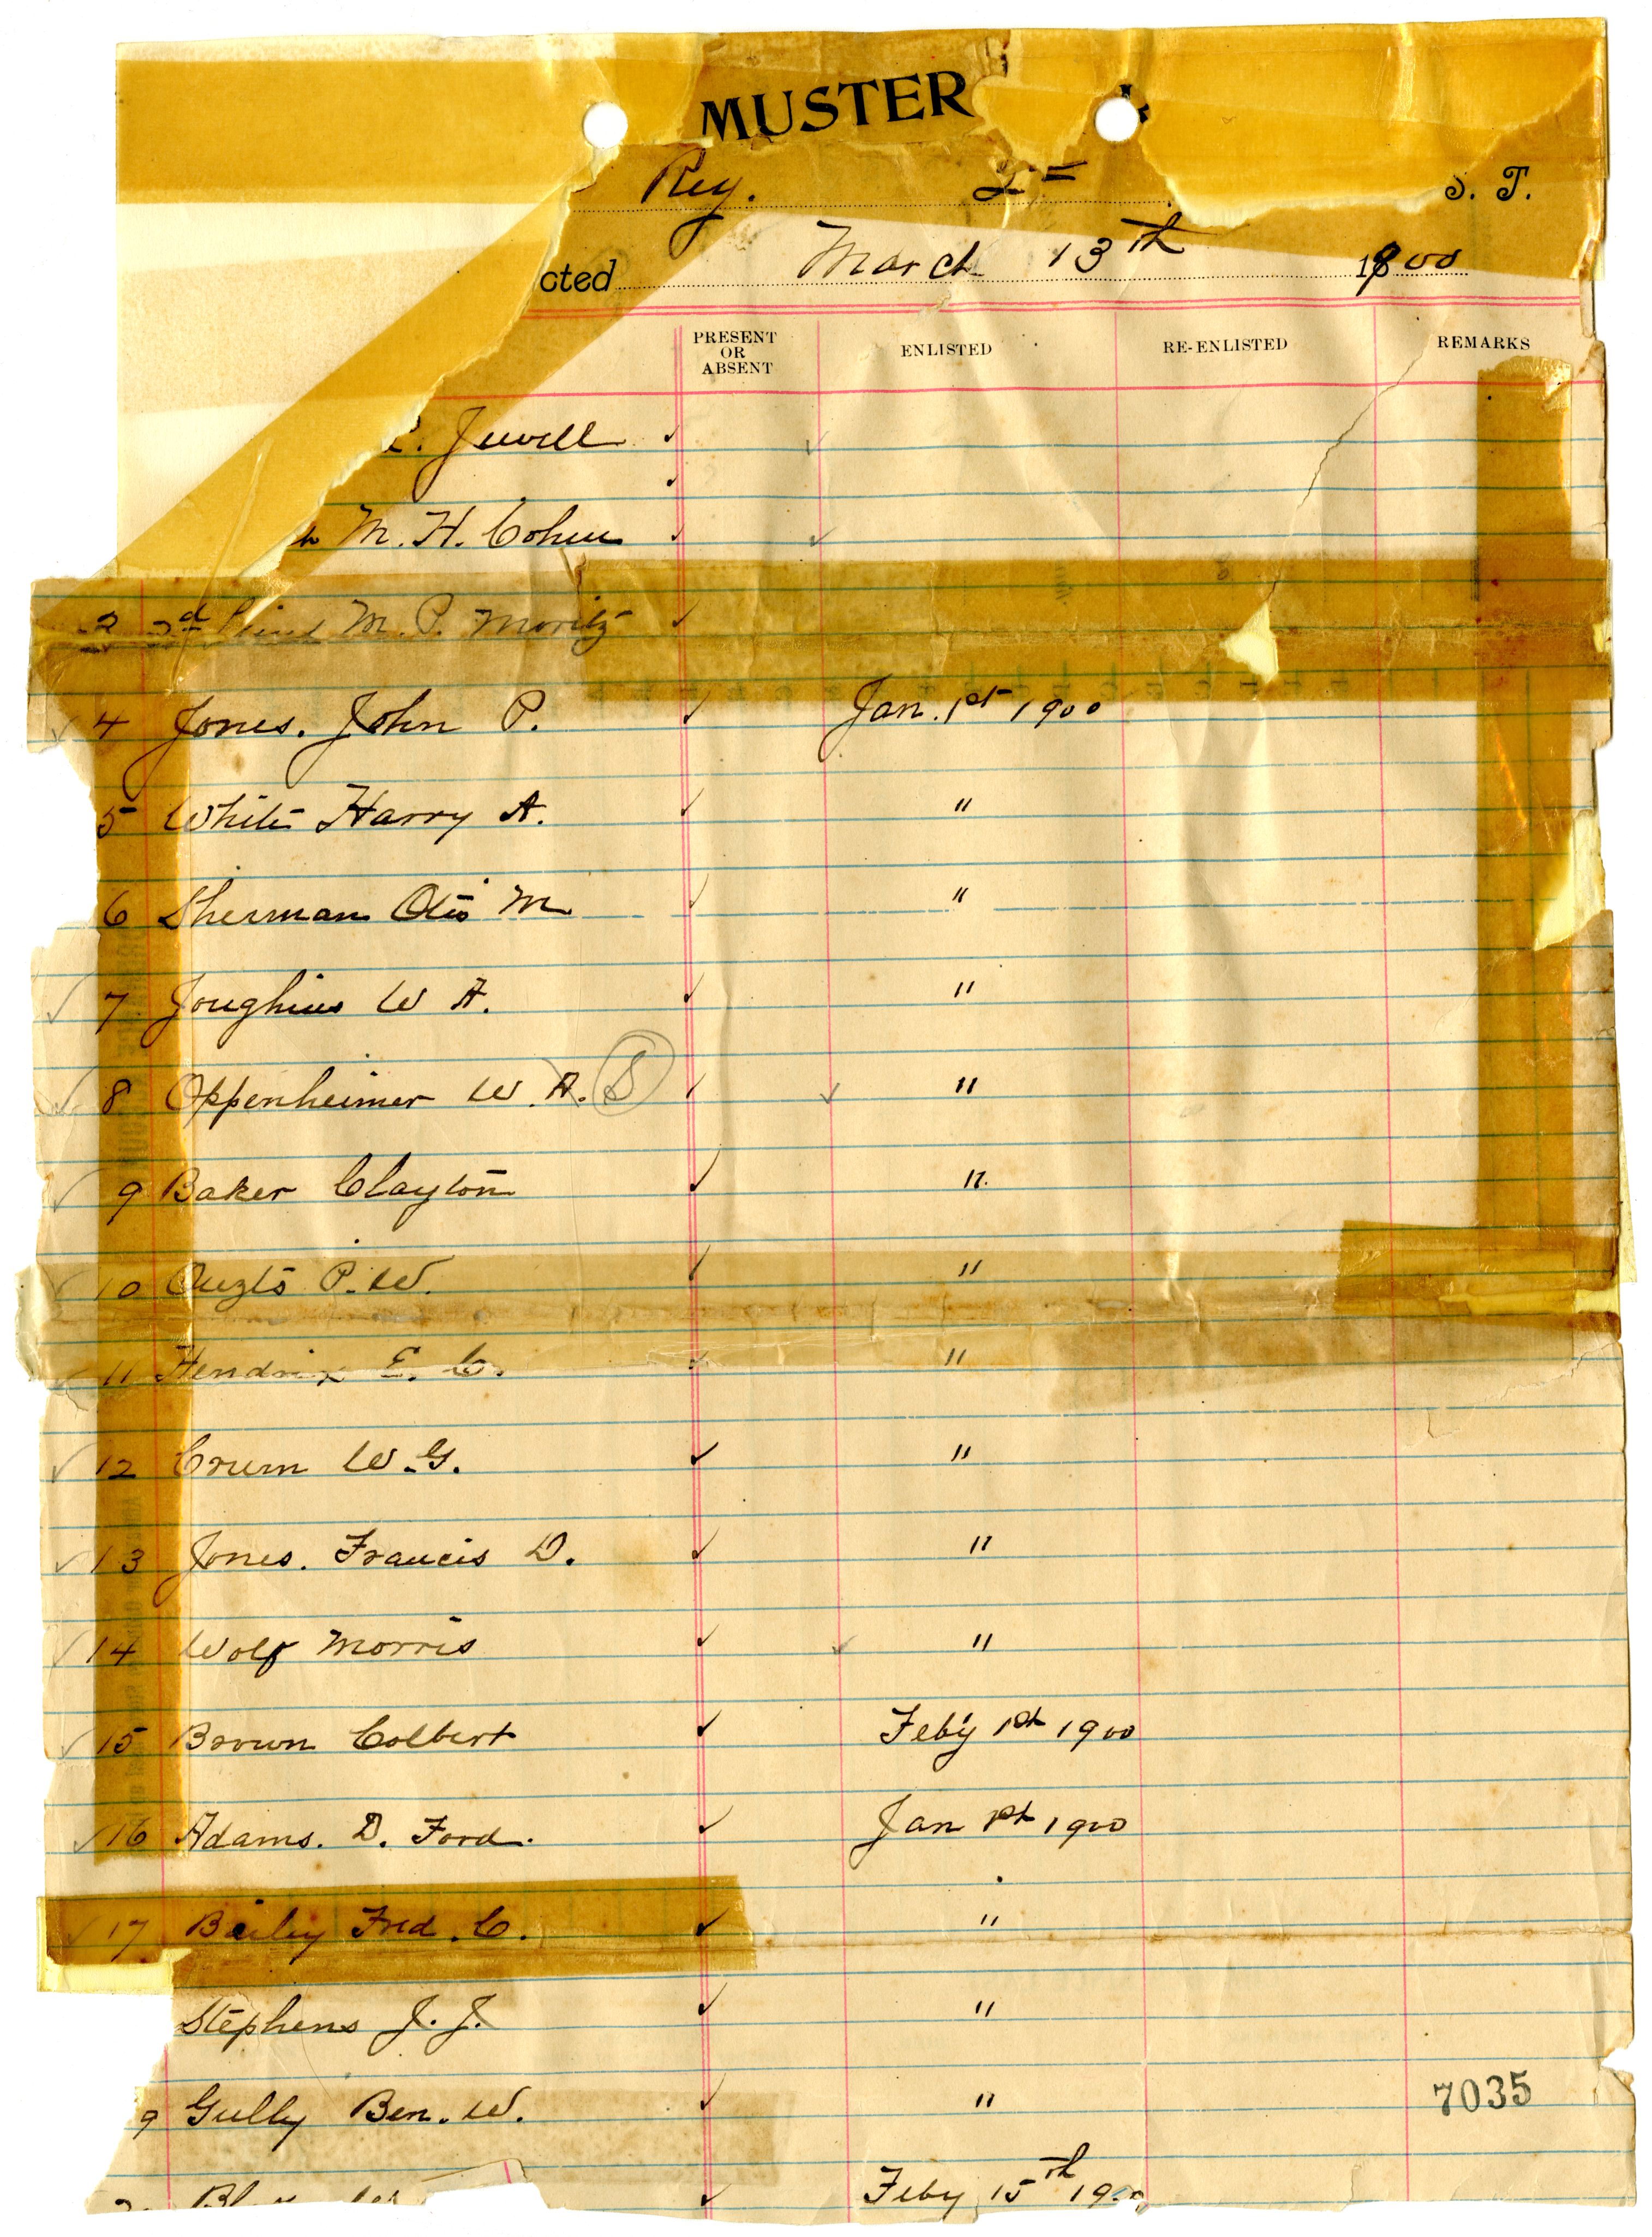 MUSTER
Reg. 2= S. T.
cted March 13th 1900
PRESENT OR ABSENT ENLISTED RE-ENLISTED REMARKS
. Jewell ✓ ✓
✓
M. H. Cohen ✓ ✓
2 2d Lieut M. P. Moritz ✓
✓ 4 Jones. John P. ✓ Jan. 1st 1900
5 White Harry A. ✓ "
6 Sherman Otis M ✓ "
✓ 7 Joughins W A. ✓ "
✓ 8 Oppenheimer W. A. S ✓ ✓ "
✓ 9 Baker Clayton ✓ "
✓ 10 Ouzts P. W. ✓ "
✓ 11 Hendrix E. C. ✓ "
✓ 12 Crum W. G. ✓ "
✓ 13 Jones. Francis D. ✓ "
✓ 14 Wolf Morris ✓ ✓ "
✓ 15 Brown Colbert ✓ Feby 1st 1900
✓ 16 Adams. D. Ford. ✓ Jan 1st 1900
✓ 17 Bailey Fred. C. ✓ "
Stephens J. J. ✓ "
9 Gully Ben. W. ✓ "
7035
✓ Feby 15th 190